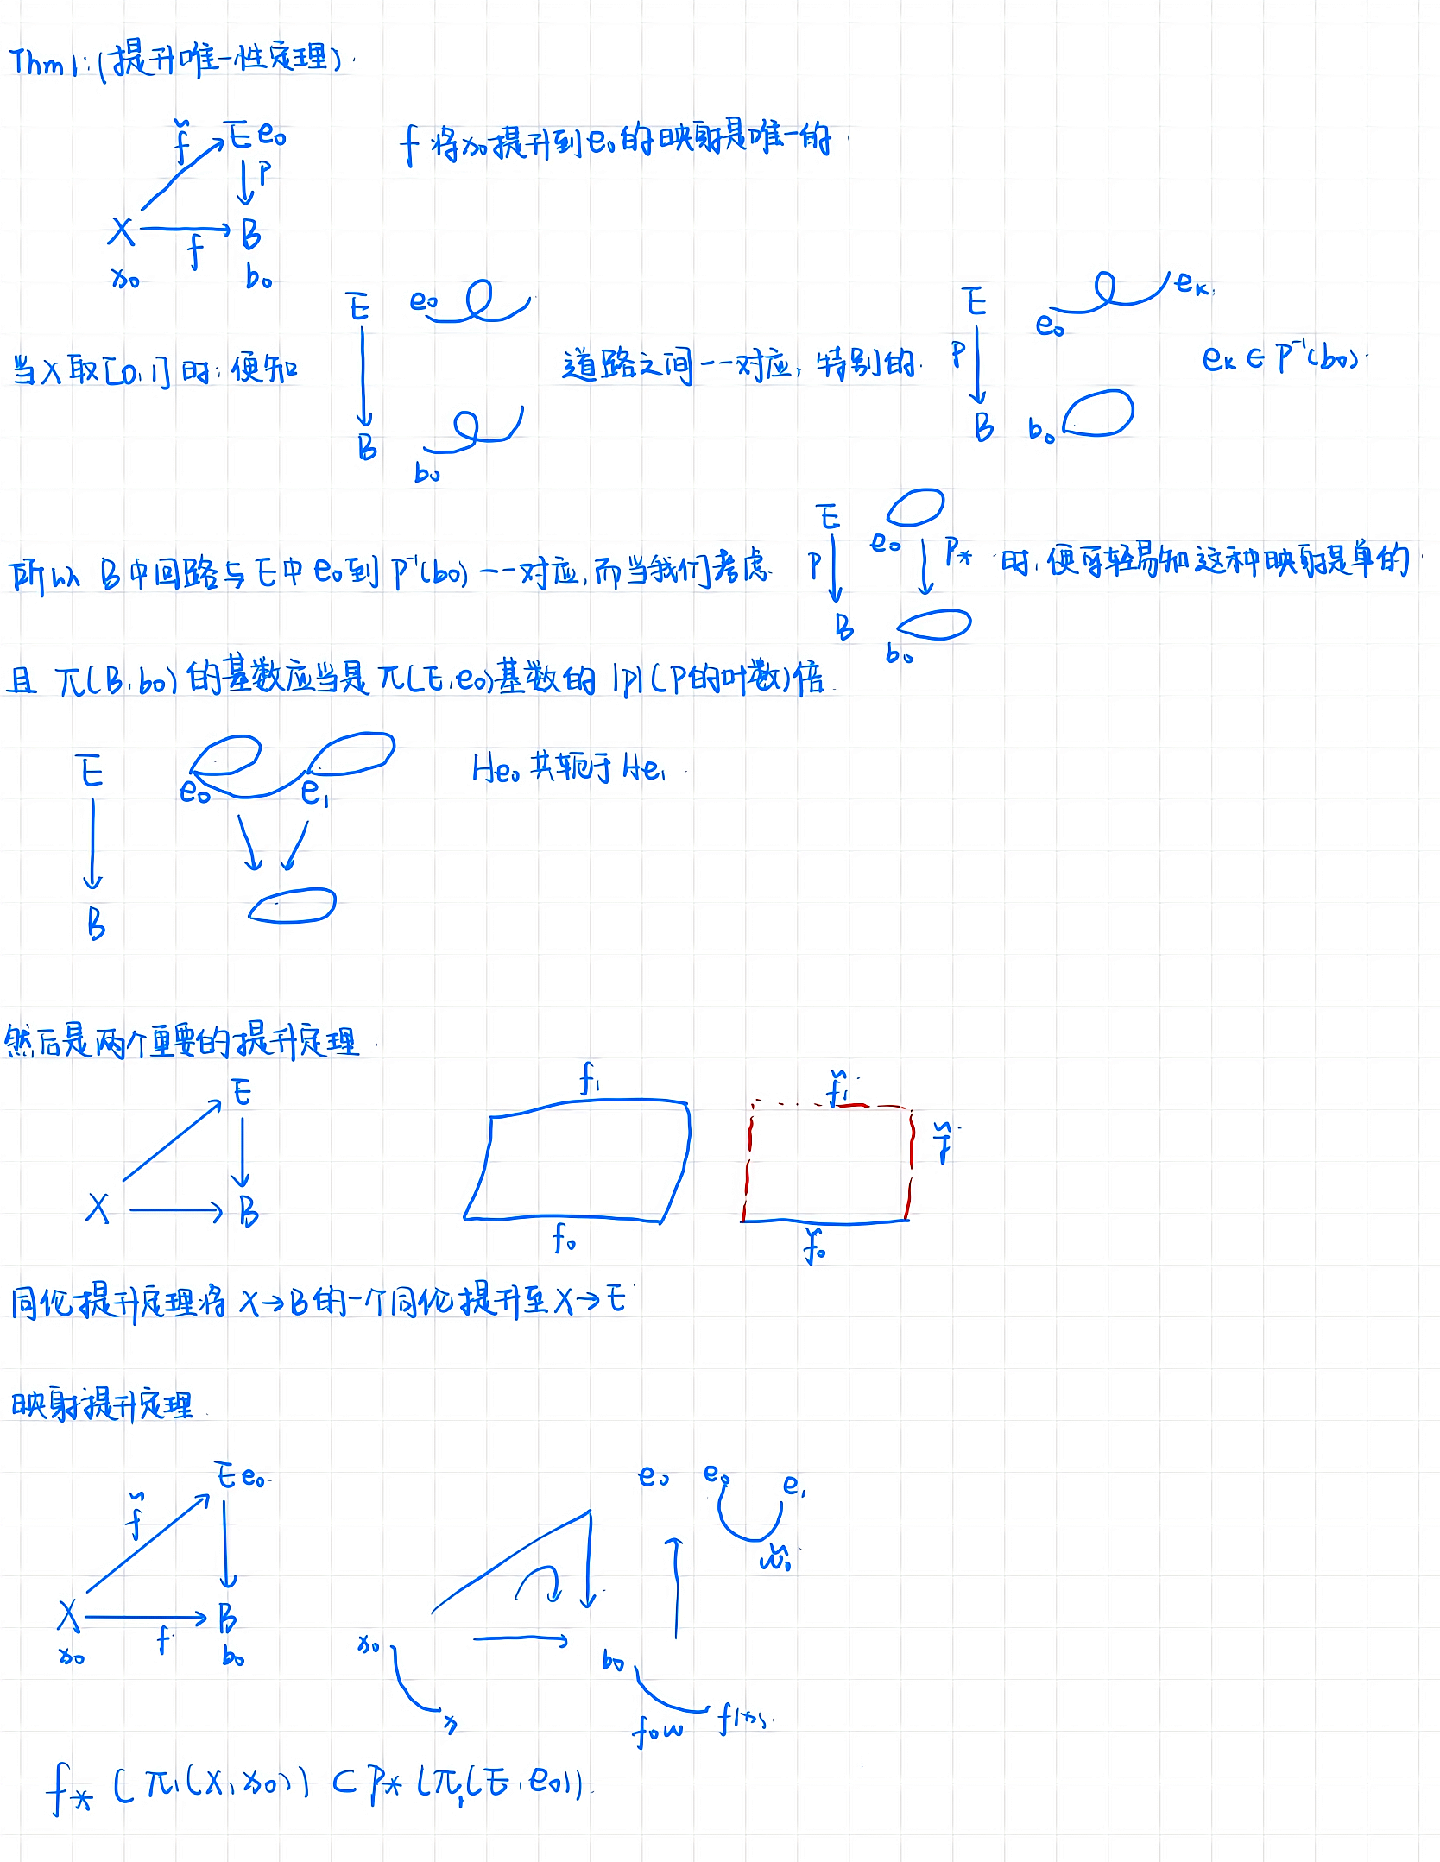 Thm 1: (提升唯一性定理).
f̃ E e₀
p
f 将x₀提升到e₀的映射是唯一的.
X f B
x₀ b₀
E e₀
当X取[0,1]时,便知
B b₀
道路之间一一对应,特别的.
E e₀ eₖ.
p
B b₀
eₖ ∈ p⁻¹(b₀).
所以 B中回路与E中e₀到p⁻¹(b₀)一一对应,而当我们考虑
E e₀
p p*
B b₀
时,便可轻易知这种映射是单的.
且 π(B,b₀)的基数应当是π(E,e₀)基数的|p|(p的叶数)倍.
E e₀ e₁
B
He₀共轭于He₁.
然后是两个重要的提升定理.
E
X B
f₁
f₀
f̃₁
f̃
f̃₀
同伦提升定理将 X→B的一个同伦提升至X→E
映射提升定理.
E e₀
f̃
X f B
x₀ b₀
e₀ e₀ e₁
w̃₀
x₀ b₀
x f∘w f(x).
f* (π₁(X,x₀)) ⊂ p* (π₁(E,e₀)).